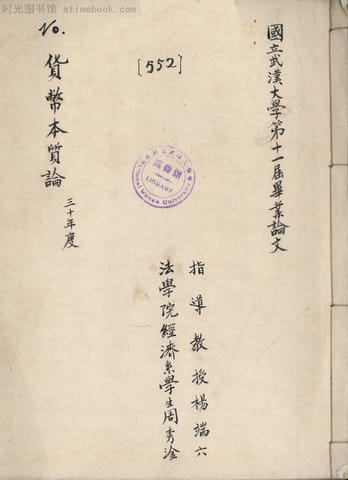 时光图书馆 atimebook.com
國立武漢大學第十一屆畢業論文
[552]
No.
貨幣本質論
三十年度
圖書館
LIBRARY
National Wuhan University
指導教授楊端六
法學院經濟系學生周秀淦